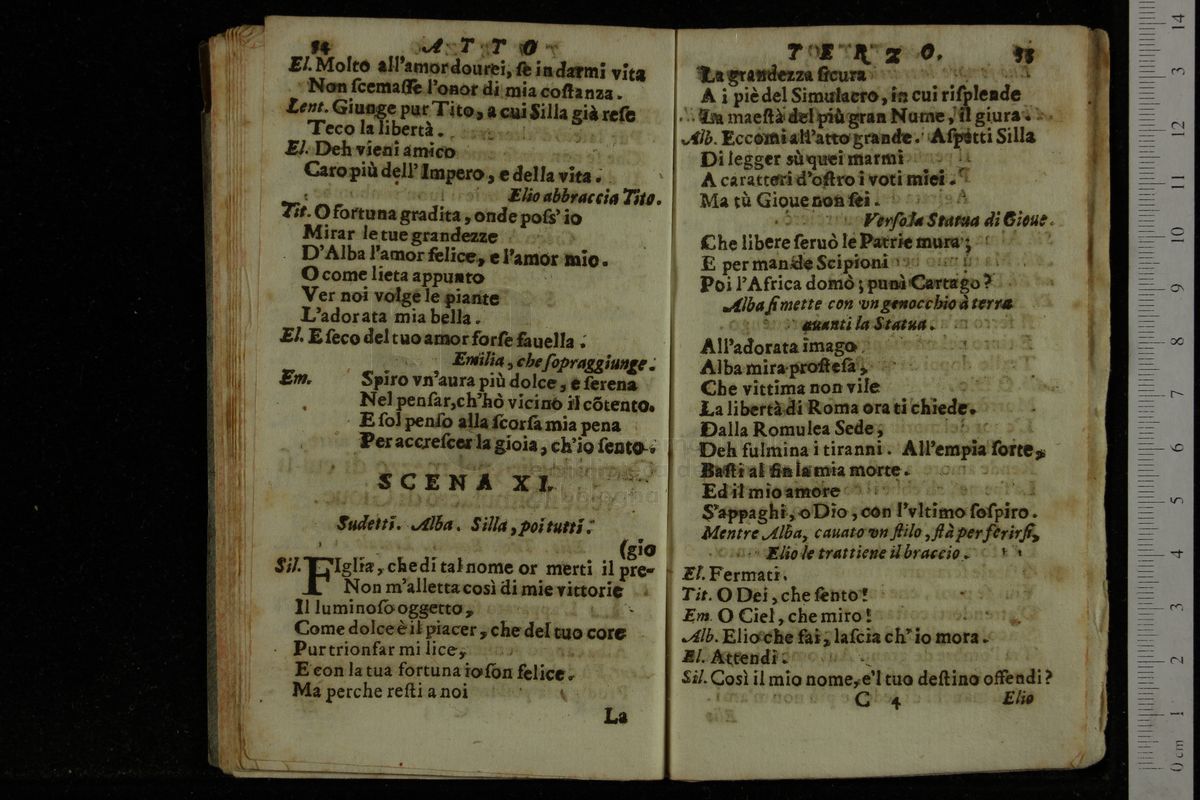 54 ATTO
El. Molto all'amor dourei, ſe in darmi vita
Non ſcemaſſe l'onor di mia coſtanza.
Lent. Giunge pur Tito, a cui Silla già reſe
Teco la libertà.
El. Deh vieni amico
Caro più dell' Impero, e della vita.
Elio abbraccia Tito.
Tit. O fortuna gradita, onde poſs' io
Mirar le tue grandezze
D'Alba l'amor felice, e l'amor mio.
O come lieta appunto
Ver noi volge le piante
L'adorata mia bella.
El. E ſeco del tuo amor forſe fauella.
Emilia, che ſopraggiunge.
Em. Spiro vn'aura più dolce, e ſerena
Nel penſar, ch'hò vicino il cõtento.
E ſol penſo alla ſcorſa mia pena
Per accreſcer la gioia, ch'io ſento.
SCENA XI.
Sudetti. Alba. Silla, poi tutti.
(gio
Sil. FIglia, che di tal nome or merti il pre-
Non m'alletta così di mie vittorie
Il luminoſo oggetto,
Come dolce è il piacer, che del tuo core
Pur trionfar mi lice,
E con la tua fortuna io ſon felice.
Ma perche reſti a noi
La
TERZO. 55
La grandezza ſicura
A i piè del Simulacro, in cui riſplende
La maeſtà del più gran Nume, il giura.
Alb. Eccomi all'atto grande. Aſpetti Silla
Di legger sù quei marmi
A caratteri d'oſtro i voti miei.
Ma tù Gioue non ſei.
Verſo la Statua di Gioue.
Che libere ſeruò le Patrie mura;
E per man de Scipioni
Poi l'Africa domò; punì Cartago?
Alba ſi mette con vn genocchio à terra
auanti la Statua.
All'adorata imago
Alba mira proſteſa,
Che vittima non vile
La libertà di Roma ora ti chiede.
Dalla Romulea Sede,
Deh fulmina i tiranni. All'empia ſorte,
Baſti al fin la mia morte.
Ed il mio amore
S'appaghi, o Dio, con l'vltimo ſoſpiro.
Mentre Alba, cauato vn ſtilo, ſtà per ferirſi,
Elio le trattiene il braccio.
El. Fermati.
Tit. O Dei, che ſento!
Em. O Ciel, che miro!
Alb. Elio che fai, laſcia ch' io mora.
El. Attendi.
Sil. Così il mio nome, e'l tuo deſtino offendi?
C 4 Elio
0 cm 1 2 3 4 5 6 7 8 9 10 11 12 13 14